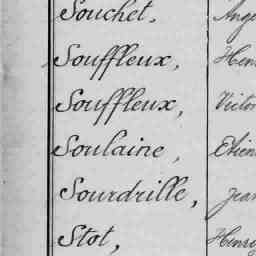 Souchet, Ange
Souffleux, Henr
Souffleux, Victor
Soulaine, Etien
Sourdrille, Jean
Stot, Henry